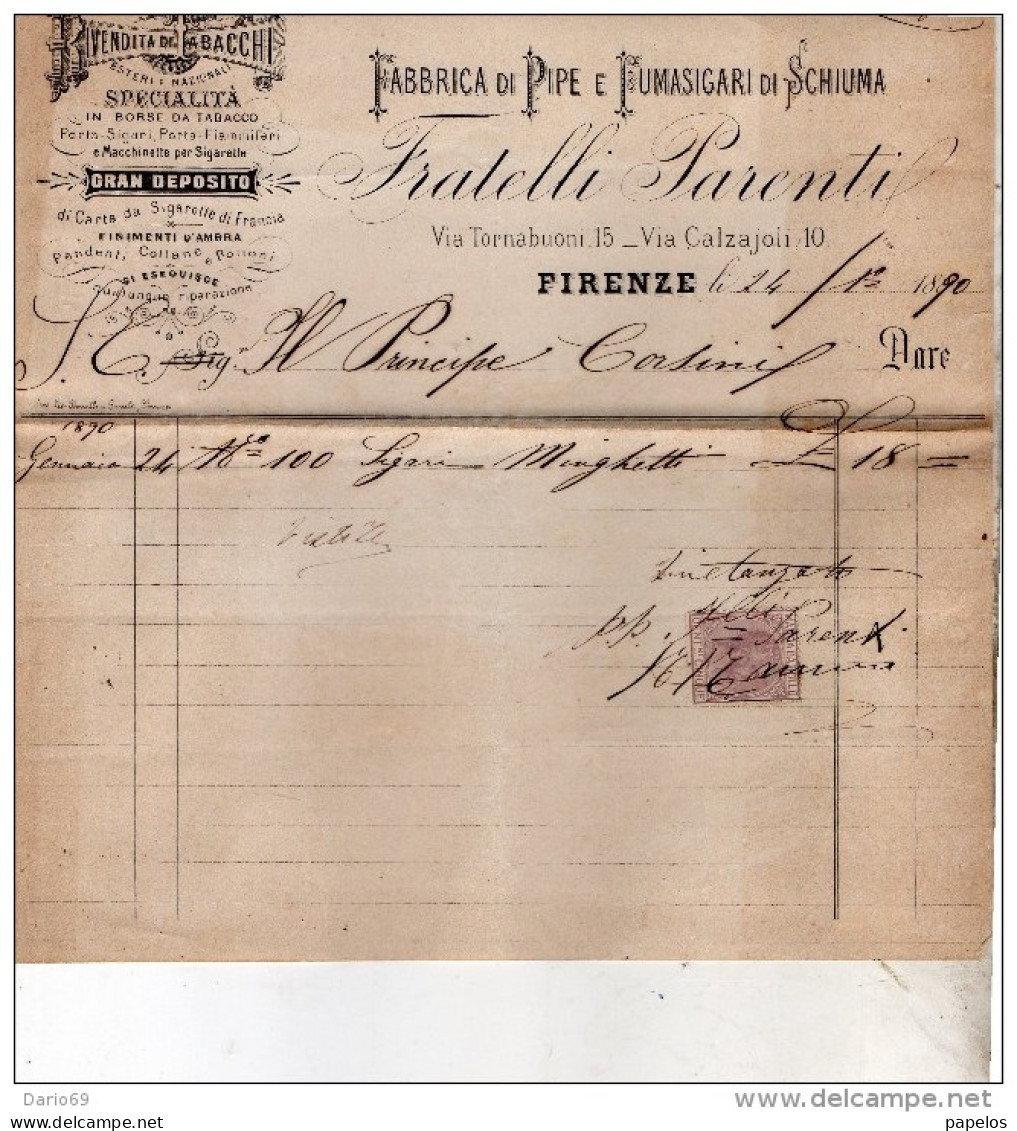 RIVENDITA DI TABACCHI
ESTERI E NAZIONALI
SPECIALITÀ
IN BORSE DA TABACCO
Porta-Sigari, Porta-Fiammiferi
e Macchinette per Sigarette
GRAN DEPOSITO
di Carta da Sigarette di Francia
FINIMENTI D'AMBRA
Pendenti, Collane e Bottoni
SI ESEGUISCE
qualunque riparazione
FABBRICA DI PIPE E FUMASIGARI DI SCHIUMA
Fratelli Parenti
Via Tornabuoni, 15 _ Via Calzajoli, 10.
FIRENZE li 24 / 1º 1890
S. E. Sig.r Il Principe Corsini Dare
1890
Gennaio 24 No 100 Sigari Minghetti £ 18 =
Quietanzato
pp. Flli Parenti
Dario69
www.delcampe.net
papelos